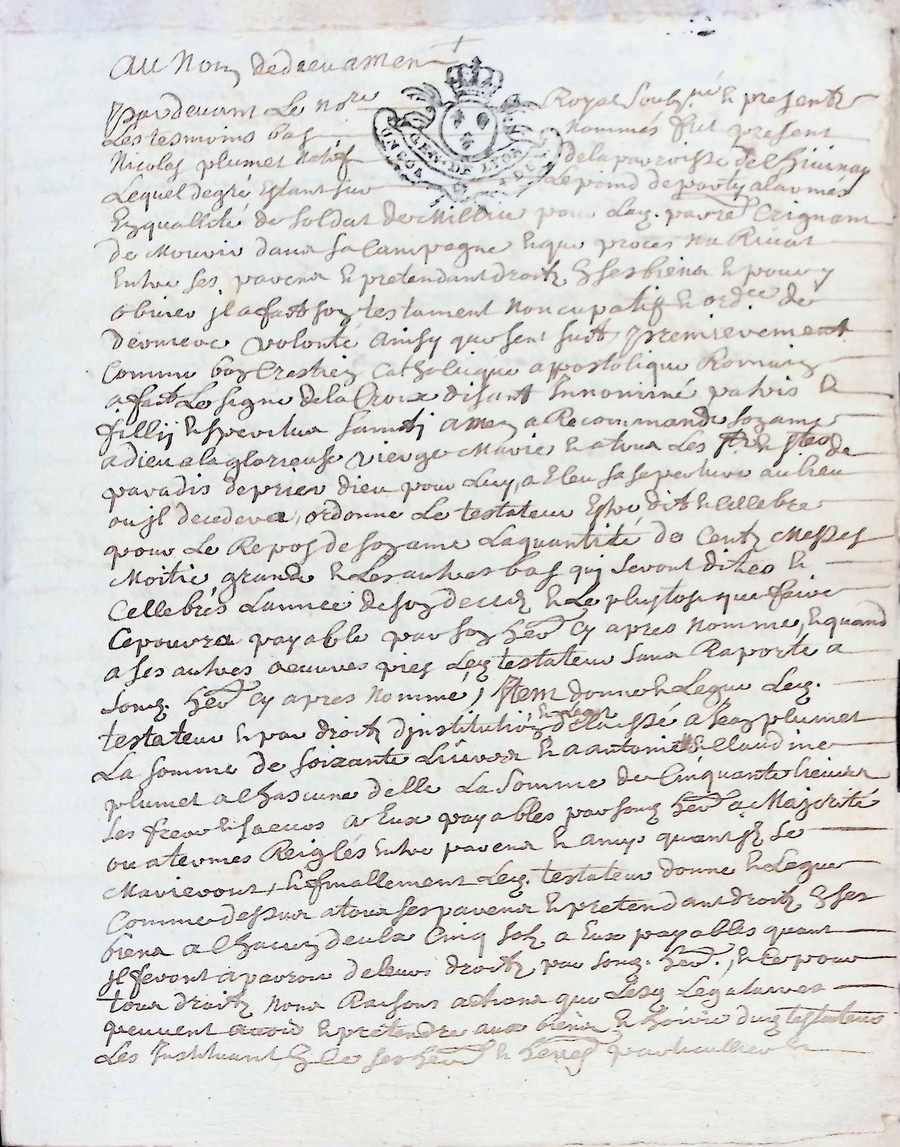 Au Nom de dieu amen
GEN. DE LYON
Pardevant Le no.re Royal Soubz.né & presentz
Les tesmoins bas nommés fut present
Nicolas plumet natif de la parroisse de Chivinay
Lequel de gré Estant sur Le poind de party a l armes
En quallité de Soldat de Millice pour Led. parre Crignant
de Mourir dans sa Campagne & que proces Na Rivat
Entre ses parens & pretendant droitz & ses biens & pour y
obvier jl a faict son testament noncupatif & ord.ce de
derniere volonté Ainsy que sent suit premierement
Comme bon Crestien Catholicque apostolique Romain
a faict Le signe de la Croix disant Innominé patris &
fillij & speritus Santi amen a Recommandé son ame
a dieu a la glorieuse vierge Marie & a tous Les sts & stes de
paradis de prier dieu pour Luy, a Eleu sa sepulture au lieu
ou jl decedera, ordonne Le testateur Estre dit & cellebré
pour Le Repos de son ame La quantité de Cent Messes
Moitié grande & Les autres bas qui seront dites &
Cellebrés Lannée de son deces & Le plustost que faire
Ce pourra payable par son her. Cy apres nommé, & quand
a ses autres oeuvres pies Led testateur sans Raporte a
sond. her. Cy apres nommé, Item donne & Legue Led.
testateur & par droitz djnstitution & Legat delaissé a Jean plumet
La somme de soixante Livres & a antoine & Claudine
plumet a Chascune delle La Somme de Cinquante livres
ses frere & saeurs a Eux payables par sond her. a Majorité
ou a termes Reiglés Entre parens & amys quant jlz se
Marieront, & finallement Led. testateur donne & Legue
Comme dessus a tous ses parens & pretendant droitz & ses
biens a Chacun deula Cinq solz a Eux payables quant
jl feront aparoir de leurs droitz par sond. her., & ce pour
tous droitz noms Raisons actions que Lesd Legataires
peuvent avoir & pretendre aux biens & hoirie dud testateur
Les Instituant & Le ses her. & heres particulliers